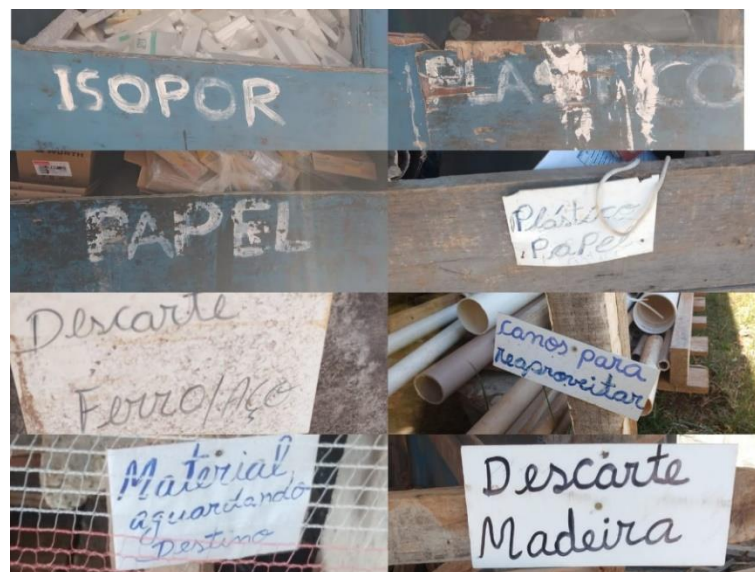 ISOPOR
PLASTICO
PAPEL
Plástico
Papel
Descarte
Ferro/Aço
canos para
reaproveitar
Material
aguardando
Destino
Descarte
Madeira